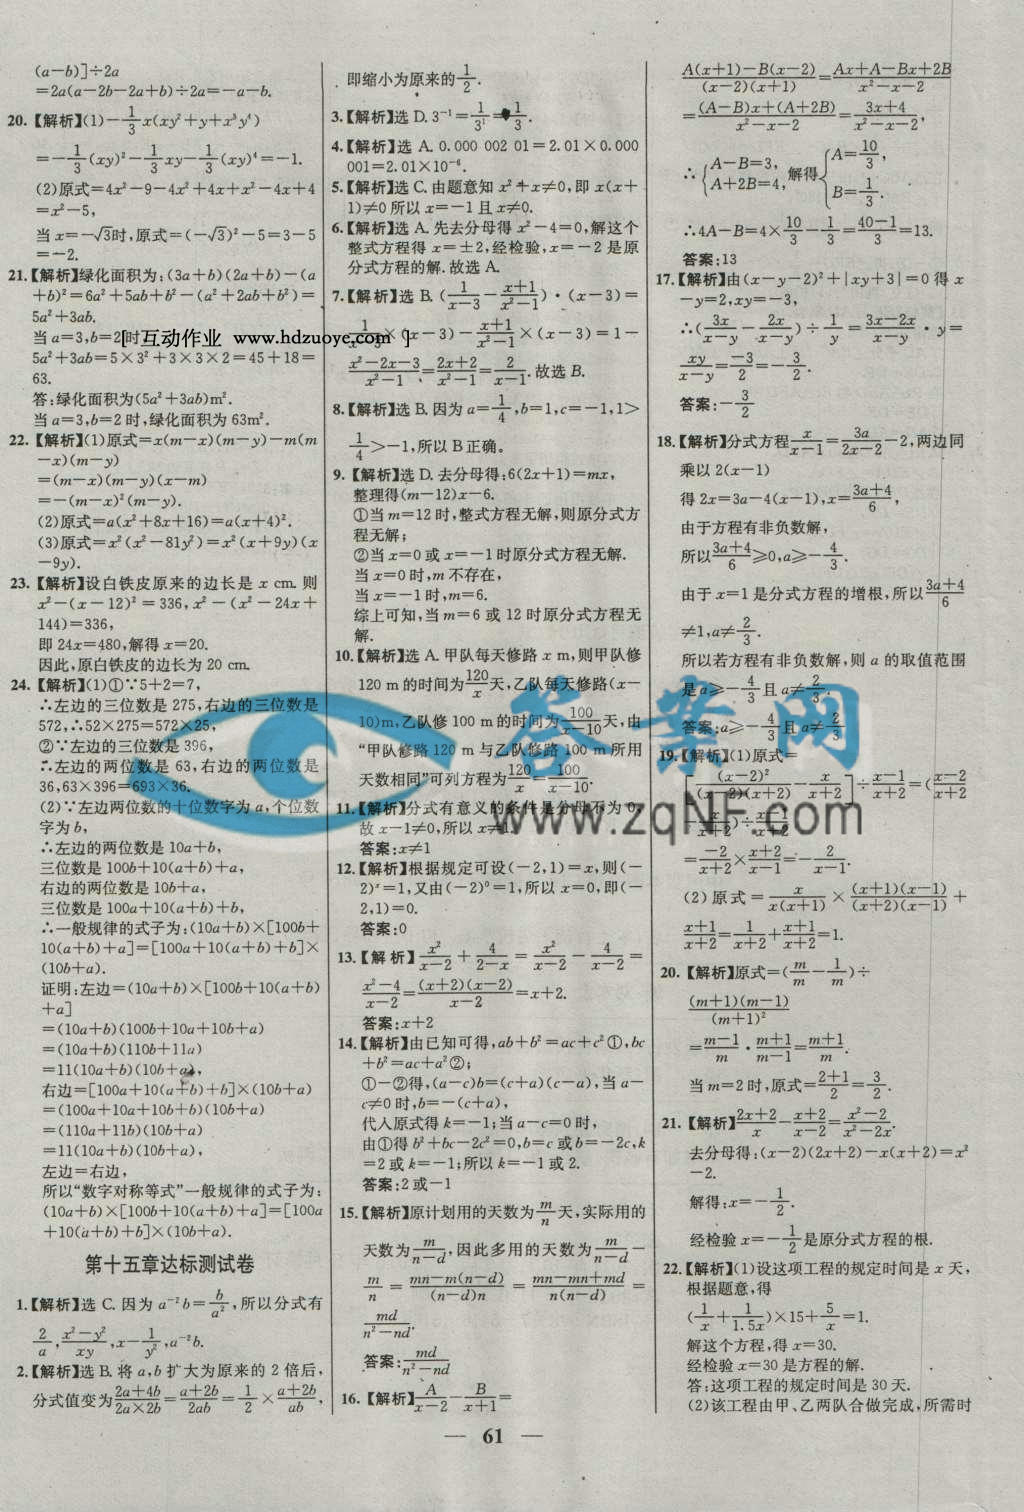 (a－b)]÷2a
＝2a(a－2b－2a＋b)÷2a＝－a－b.
20.【解析】(1)－1/3x(xy²＋y＋x³y⁴)
＝－1/3(xy)²－1/3xy－1/3(xy)⁴＝－1.
(2)原式＝4x²－9－4x²＋4x＋x²－4x＋4
＝x²－5,
当x＝－√3时,原式＝(－√3)²－5＝3－5
＝－2.
21.【解析】绿化面积为:(3a＋b)(2a＋b)－(a
＋b)²＝6a²＋5ab＋b²－(a²＋2ab＋b²)＝
5a²＋3ab.
当a＝3,b＝2时
5a²＋3ab＝5×3²＋3×3×2＝45＋18＝
63.
答:绿化面积为(5a²＋3ab)m².
当a＝3,b＝2时,绿化面积为63m².
22.【解析】(1)原式＝x(m－x)(m－y)－m(m
－x)(m－y)
＝(m－x)(m－y)(x－m)
＝－(m－x)²(m－y).
(2)原式＝a(x²＋8x＋16)＝a(x＋4)².
(3)原式＝x²(x²－81y²)＝x²(x＋9y)(x
－9y).
23.【解析】设白铁皮原来的边长是x cm.则
x²－(x－12)²＝336,x²－(x²－24x＋
144)＝336,
即24x＝480,解得x＝20.
因此,原白铁皮的边长为20 cm.
24.【解析】(1)①∵5＋2＝7,
∴左边的三位数是275,右边的三位数是
572,∴52×275＝572×25,
②∵左边的三位数是396,
∴左边的两位数是63,右边的两位数是
36,63×396＝693×36.
(2)∵左边两位数的十位数字为a,个位数
字为b,
∴左边的两位数是10a＋b,
三位数是100b＋10(a＋b)＋a,
右边的两位数是10b＋a,
三位数是100a＋10(a＋b)＋b,
∴一般规律的式子为:(10a＋b)×[100b＋
10(a＋b)＋a]＝[100a＋10(a＋b)＋b]×
(10b＋a).
证明:左边＝(10a＋b)×[100b＋10(a＋b)
＋a]
＝(10a＋b)(100b＋10a＋10b＋a)
＝(10a＋b)(110b＋11a)
＝11(10a＋b)(10b＋a),
右边＝[100a＋10(a＋b)＋b]×(10b＋a)
＝(100a＋10a＋10b＋b)(10b＋a)
＝(110a＋11b)(10b＋a)
＝11(10a＋b)(10b＋a),
左边＝右边,
所以“数字对称等式”一般规律的式子为:
(10a＋b)×[100b＋10(a＋b)＋a]＝[100a
＋10(a＋b)＋b]×(10b＋a).
第十五章达标测试卷
1.【解析】选C.因为a⁻²b＝b/a²,所以分式有
2/a,(x²－y²)/xy,x－1/y²,a⁻²b.
2.【解析】选B.将a,b扩大为原来的2倍后,
分式值变为(2a＋4b)/(2a×2b)＝(a＋2b)/2ab＝1/2×(a＋2b)/ab,
即缩小为原来的1/2.
3.【解析】选D.3⁻¹＝1/3¹＝1/3.
4.【解析】选A.0.000 002 01＝2.01×0.000
001＝2.01×10⁻⁶.
5.【解析】选C.由题意知x²＋x≠0,即x(x＋
1)≠0所以x＝－1且x≠0.
6.【解析】选A.先去分母得x²－4＝0,解这个
整式方程得x＝±2,经检验,x＝－2是原
分式方程的解.故选A.
7.【解析】选B.(1/(x－3)－(x＋1)/(x²－1))·(x－3)＝
1/(x－3)×(x－3)－(x＋1)/(x²－1)×(x－3)＝1－
(x²－2x－3)/(x²－1)＝(2x＋2)/(x²－1)＝2/(x－1).故选B.
8.【解析】选B.因为a＝1/4,b＝1,c＝－1,1>
1/4>－1,所以B正确。
9.【解析】选D.去分母得:6(2x＋1)＝mx,
整理得(m－12)x－6.
①当m＝12时,整式方程无解,则原分式方
程无解;
②当x＝0或x＝－1时原分式方程无解.
当x＝0时,m不存在,
当x＝－1时,m＝6.
综上可知,当m＝6或12时原分式方程无
解.
10.【解析】选A.甲队每天修路x m,则甲队修
120 m的时间为120/x天,乙队每天修路(x－
10)m,乙队修100 m的时间为100/(x－10)天,由
“甲队修路120 m与乙队修路100 m所用
天数相同”可列方程为120/x＝100/(x－10).
11.【解析】分式有意义的条件是分母不为0,
故x－1≠0,所以x≠1.
答案:x≠1
12.【解析】根据规定可设(－2,1)＝x,则(－
2)ˣ＝1,又由(－2)⁰＝1,所以x＝0,即(－
2,1)＝0.
答案:0
13.【解析】x²/(x－2)＋4/(2－x)＝x²/(x－2)－4/(x－2)＝
(x²－4)/(x－2)＝(x＋2)(x－2)/(x－2)＝x＋2.
答案:x＋2
14.【解析】由已知可得,ab＋b²＝ac＋c²①,bc
＋b²＝ac＋a²②;
①－②得,(a－c)b＝(c＋a)(c－a),当a－
c≠0时,b＝－(c＋a),
代入原式得k＝－1;当a－c＝0时,
由①得b²＋bc－2c²＝0,b＝c或b＝－2c,k
＝2或k＝－1;所以k＝－1或2.
答案:2或－1
15.【解析】原计划用的天数为m/n天,实际用的
天数为m/(n－d),因此多用的天数为m/(n－d)－
m/n＝(mn－m(n－d))/((n－d)n)＝(mn－mn＋md)/(n(n－d))＝
md/(n²－nd).
答案:md/(n²－nd)
16.【解析】A/(x－2)－B/(x＋1)＝
(A(x＋1)－B(x－2))/((x－2)(x＋1))＝(Ax＋A－Bx＋2B)/(x²－x－2)
＝((A－B)x＋(A＋2B))/(x²－x－2)＝(3x＋4)/(x²－x－2),
∴{A－B＝3, A＋2B＝4,解得{A＝10/3, B＝1/3.
∴4A－B＝4×10/3－1/3＝(40－1)/3＝13.
答案:13
17.【解析】由(x－y－2)²＋|xy＋3|＝0得x
－y＝2,xy＝－3,
∴(3x/(x－y)－2x/(x－y))÷1/y＝(3x－2x)/(x－y)·y＝
xy/(x－y)＝－3/2＝－3/2.
答案:－3/2
18.【解析】分式方程x/(x－1)＝3a/(2x－2)－2,两边同
乘以2(x－1)
得2x＝3a－4(x－1),x＝(3a＋4)/6,
由于方程有非负数解,
所以(3a＋4)/6≥0,a≥－4/3.
由于x＝1是分式方程的增根,所以(3a＋4)/6
≠1,a≠2/3.
所以若方程有非负数解,则a的取值范围
是a≥－4/3且a≠2/3.
答案:a≥－4/3且a≠2/3
19.【解析】(1)原式＝
[(x－2)²/((x－2)(x＋2))－x/(x＋2)]÷(x－1)/(x＋2)＝((x－2)/(x＋2)
－x/(x＋2))÷(x－1)/(x＋2)
＝－2/(x＋2)×(x＋2)/(x－1)＝－2/(x－1).
(2)原式＝x/(x(x＋1))×(x＋1)(x－1)/((x＋2)(x－1))＋
(x＋1)/(x＋2)＝1/(x＋2)＋(x＋1)/(x＋2)＝1.
20.【解析】原式＝(m/m－1/m)÷
(m＋1)(m－1)/(m＋1)²
＝(m－1)/m·(m＋1)/(m－1)＝(m＋1)/m.
当m＝2时,原式＝(2＋1)/2＝3/2.
21.【解析】(2x＋2)/x－(x＋2)/(x－2)＝(x²－2)/(x²－2x).
去分母得:(x－2)(2x＋2)－x(x＋2)＝x²
－2.
解得:x＝－1/2.
经检验x＝－1/2是原分式方程的根.
22.【解析】(1)设这项工程的规定时间是x天,
根据题意,得
(1/x＋1/1.5x)×15＋5/x＝1.
解这个方程,得x＝30.
经检验x＝30是方程的解.
答:这项工程的规定时间是30天.
(2)该工程由甲、乙两队合做完成,所需时
— 61 —
[ 互动作业 www.hdzuoye.com ]
答案网
www.zqNF.com